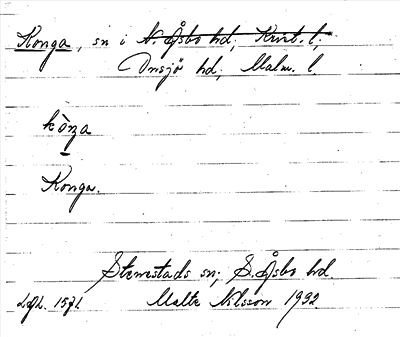 Konga, sn i N. Åsbo hd, Krist. l,
Onsjö hd, Malm. l.
kòŋa
Konga.
Stenestads sn, S. Åsbo hd
Malte Nilsson 1932